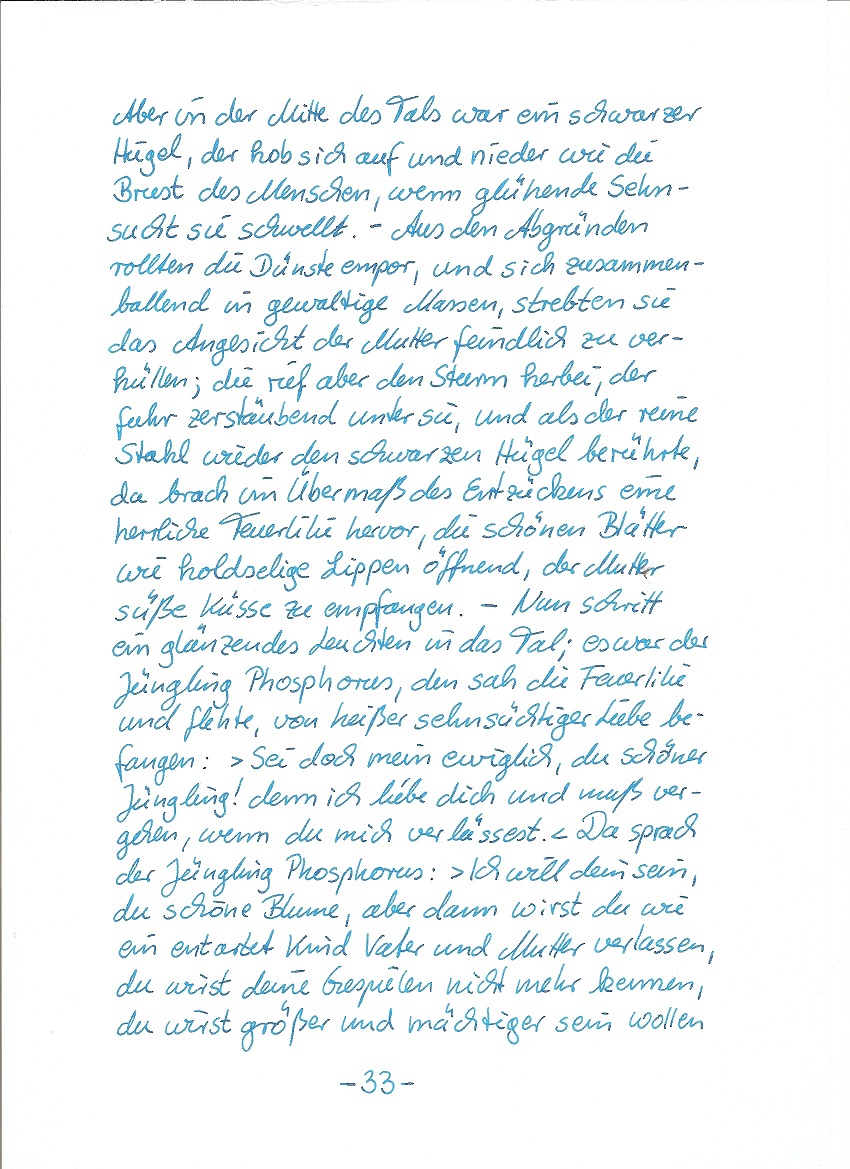 Aber in der Mitte des Tals war ein schwarzer
Hügel, der hob sich auf und nieder wie die
Brust des Menschen, wenn glühende Sehn-
sucht sie schwellt. - Aus den Abgründen
rollten die Dünste empor, und sich zusammen-
ballend in gewaltige Massen, strebten sie
das Angesicht der Mutter feindlich zu ver-
hüllen; die rief aber den Sturm herbei, der
fuhr zerstäubend unter sie, und als der reine
Stahl wieder den schwarzen Hügel berührte,
da brach im Übermaß des Entzückens eine
herrliche Feuerlilie hervor, die schönen Blätter
wie holdselige Lippen öffnend, der Mutter
süße Küsse zu empfangen. - Nun schritt
ein glänzendes Leuchten in das Tal; es war der
Jüngling Phosphorus, den sah die Feuerlilie
und flehte, von heißer sehnsüchtiger Liebe be-
fangen: >Sei doch mein ewiglich, du schöner
Jüngling! denn ich liebe dich und muß ver-
gehen, wenn du mich verlässest.< Da sprach
der Jüngling Phosphorus: >Ich will dein sein,
du schöne Blume, aber dann wirst du wie
ein entartet Kind Vater und Mutter verlassen,
du wirst deine Gespielen nicht mehr kennen,
du wirst größer und mächtiger sein wollen
-33-